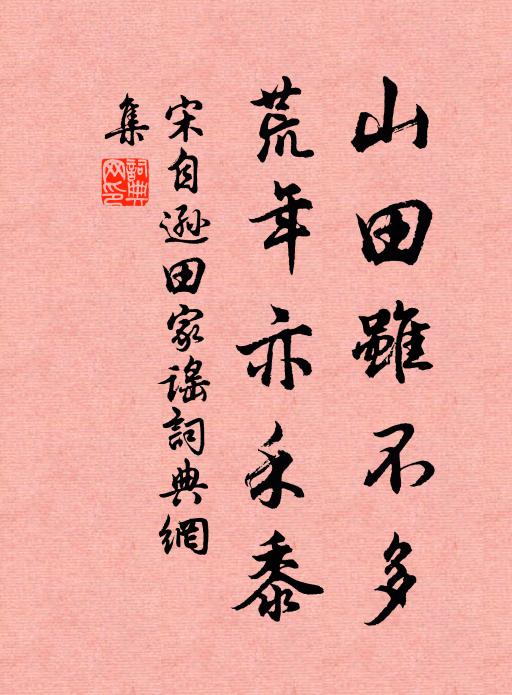 山田雖不多
荒年亦禾黍
宋自遜田家謠詞典網
集
詞典網印